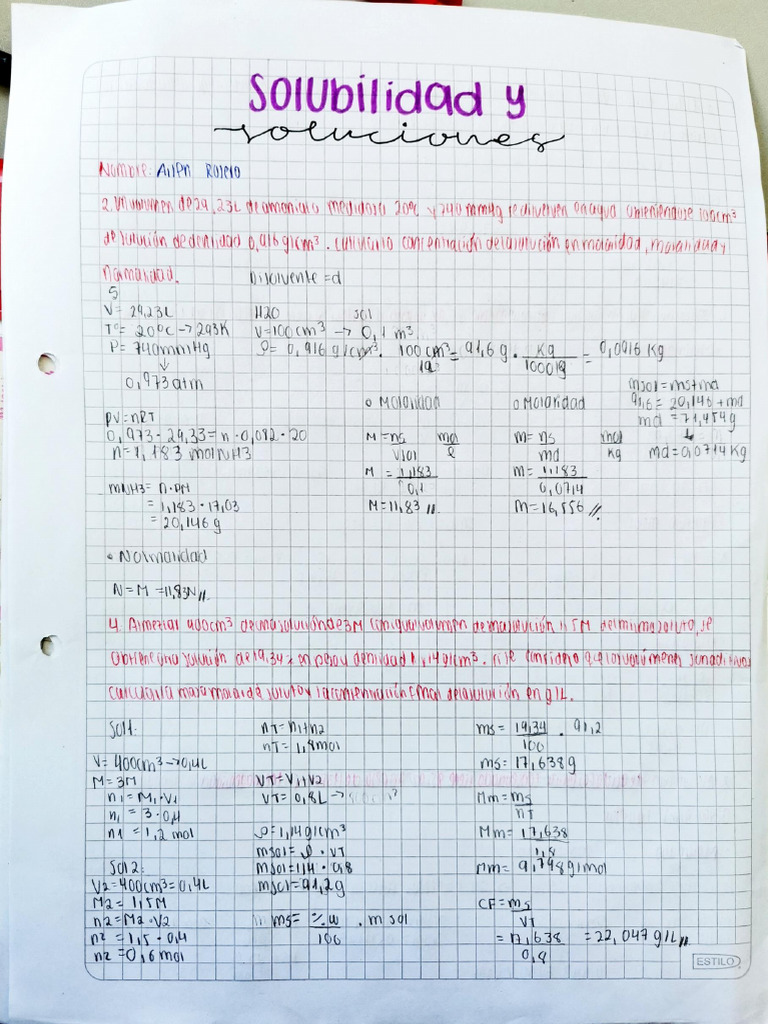 Solubilidad y
soluciones
Nombre: Arlen Rosero
2. Un volumen de 29,23L de amoniaco medidos a 20°C y 740 mmHg se disuelven en agua obteniéndose 100cm³
de solución de densidad 0,916 g/cm³. Calcular la concentración de la solución en molaridad, molalidad y
normalidad.
Disolvente = d
S
V = 29,23L
T° = 20°C → 293K
P = 740mmHg
↓
0,973 atm
PV = nRT
0,973 · 29,33 = n · 0,082 · 20
n = 1,183 mol NH3
mNH3 = n · PM
= 1,183 · 17,03
= 20,146 g
H2O sol
V = 100cm³ → 0,1 m³
ρ = 0,916 g/cm³ · 100cm³ = 91,6 g · kg = 0,0916 kg
1000g
o Molaridad
M = ns mol
Vsol l
M = 1,183
0,1
M = 11,83 //
o Molalidad
m = ns mol
md kg
m = 1,183
0,0714
m = 16,556 //
msol = ms + md
91,6 = 20,146 + md
md = 71,454g
↓
md = 0,0714 Kg
• Normalidad
N = M = 11,83N //
4. Al mezclar 400cm³ de una solución de 3M con igual volumen de una solución 1,5M del mismo soluto, se
obtiene una solución de 19,34% en peso y densidad 1,14g/cm³. si se considera que los volúmenes son aditivos
calcular la masa molar de soluto y la concentración final de la solución en g/L.
Sol 1:
V = 400cm³ → 0,4L
M = 3M
n1 = M1 · V1
n1 = 3 · 0,4
n1 = 1,2 mol
Sol 2:
V2 = 400cm³ = 0,4L
M2 = 1,5M
n2 = M2 · V2
n2 = 1,5 · 0,4
n2 = 0,6 mol
nT = n1 + n2
nT = 1,8mol
VT = V1 + V2
VT = 0,8L →
ρ = 1,14g/cm³
msol = ρ · VT
msol = 114 · 0,8
msol = 91,2g
ms = %w . m sol
100
ms = 19,34 . 91,2
100
ms = 17,638g
Mm = ms
nT
Mm = 17,638
1,8
Mm = 9,798g/mol
CF = ms
VT
= 17,638 = 22,047 g/L //
0,8
ESTILO